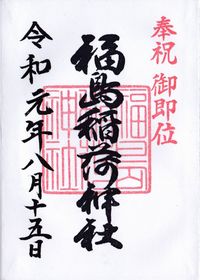 奉祝 御即位
福島稲荷神社
令和元年八月十五日